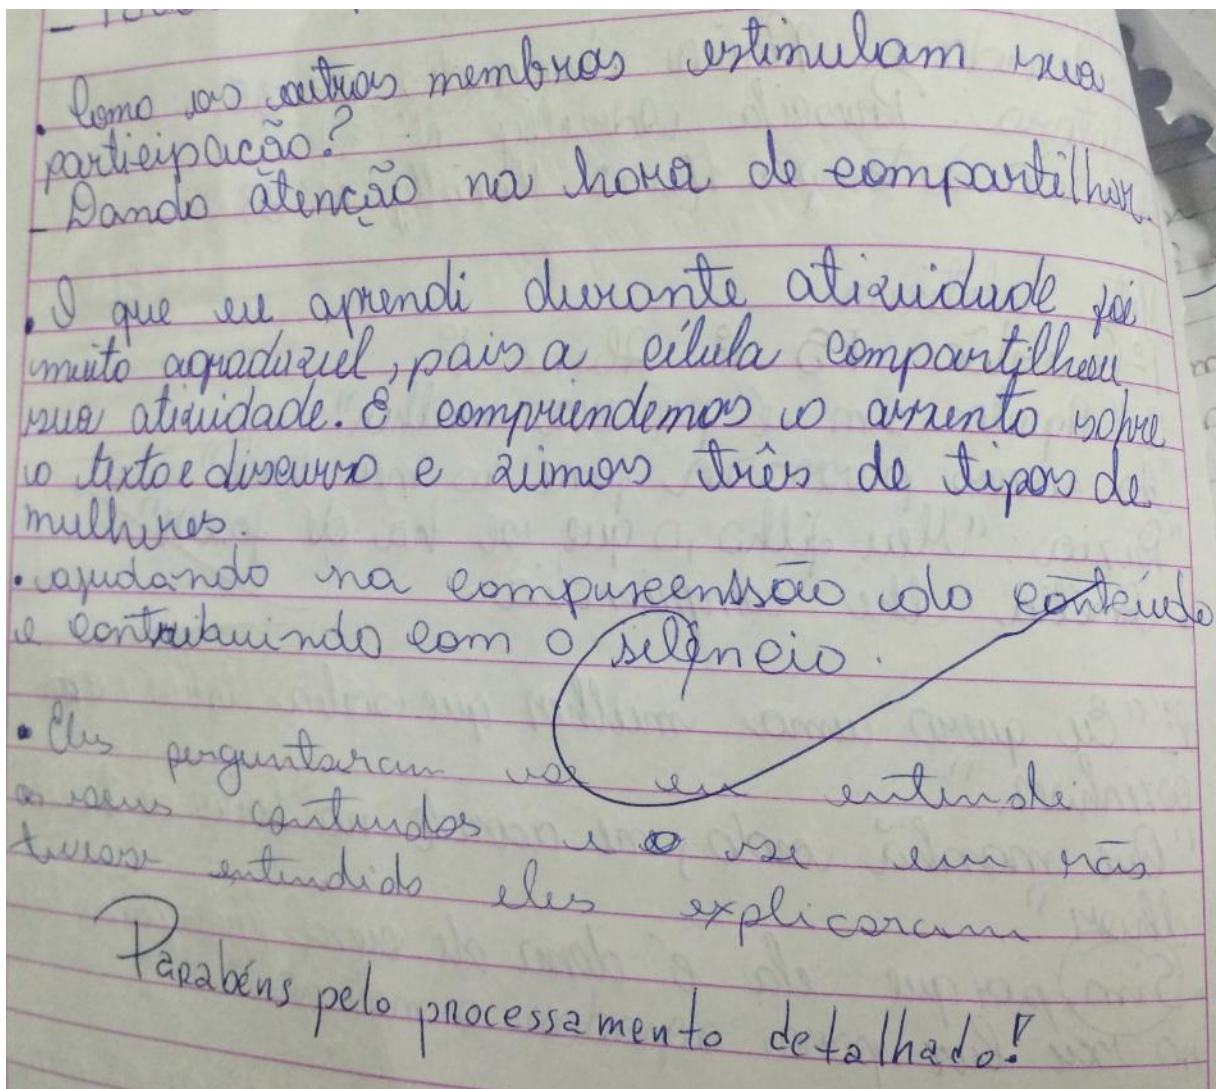 . Como os outros membros estimulam sua
participação?
- Dando atenção na hora de compartilhar.
. O que eu aprendi durante atividade foi
muito agradável, pois a célula compartilhou
sua atividade. E compreendemos o assunto sobre
o texto e discurso e vimos três de tipos de
mulheres.
. ajudando na compreensão do conteúdo
e contribuindo com o silêncio.
. Eles perguntaram se eu entende
os seus conteudos e se eu não
tivesse entendido eles explicaram
Parabéns pelo processamento detalhado!